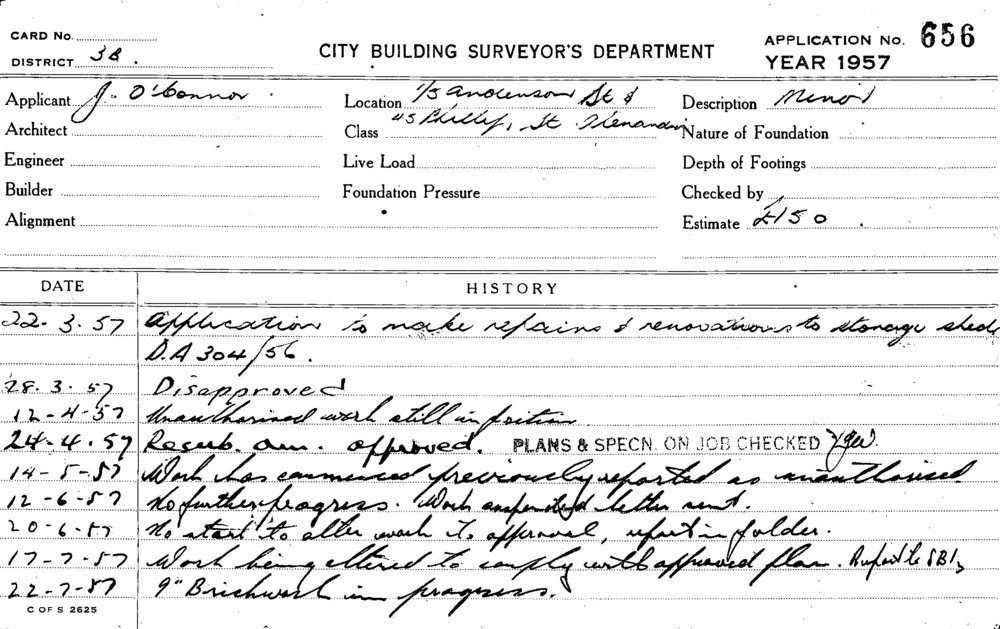 CARD No.
DISTRICT 3B.
CITY BUILDING SURVEYOR'S DEPARTMENT
APPLICATION No. 656
YEAR 1957
Applicant J. O'Connor
Location 1/5 Anderson St &
Description Minor
Architect
Class 45 Phillip, St. Alexandria
Nature of Foundation
Engineer
Live Load
Depth of Footings
Builder
Foundation Pressure
Checked by
Alignment
Estimate £150
DATE
HISTORY
22.3.57 Application to make repairs & renovations to storage sheds
D.A 304/56.
28.3.57 Disapproved
12-4-57 Unauthorised work still in position
24-4.57 Resub. am. approved. PLANS & SPECN. ON JOB CHECKED
14-5-57 Work has commenced previously reported as unauthorised.
12-6-57 No further progress. Work suspended letter sent.
20-6-57 No start to alter work to approval, report in folder.
17-7-57 Work being altered to comply with approved plan. Report to SBI
22-7-57 9" Brickwork in progress.
C OF S 2625